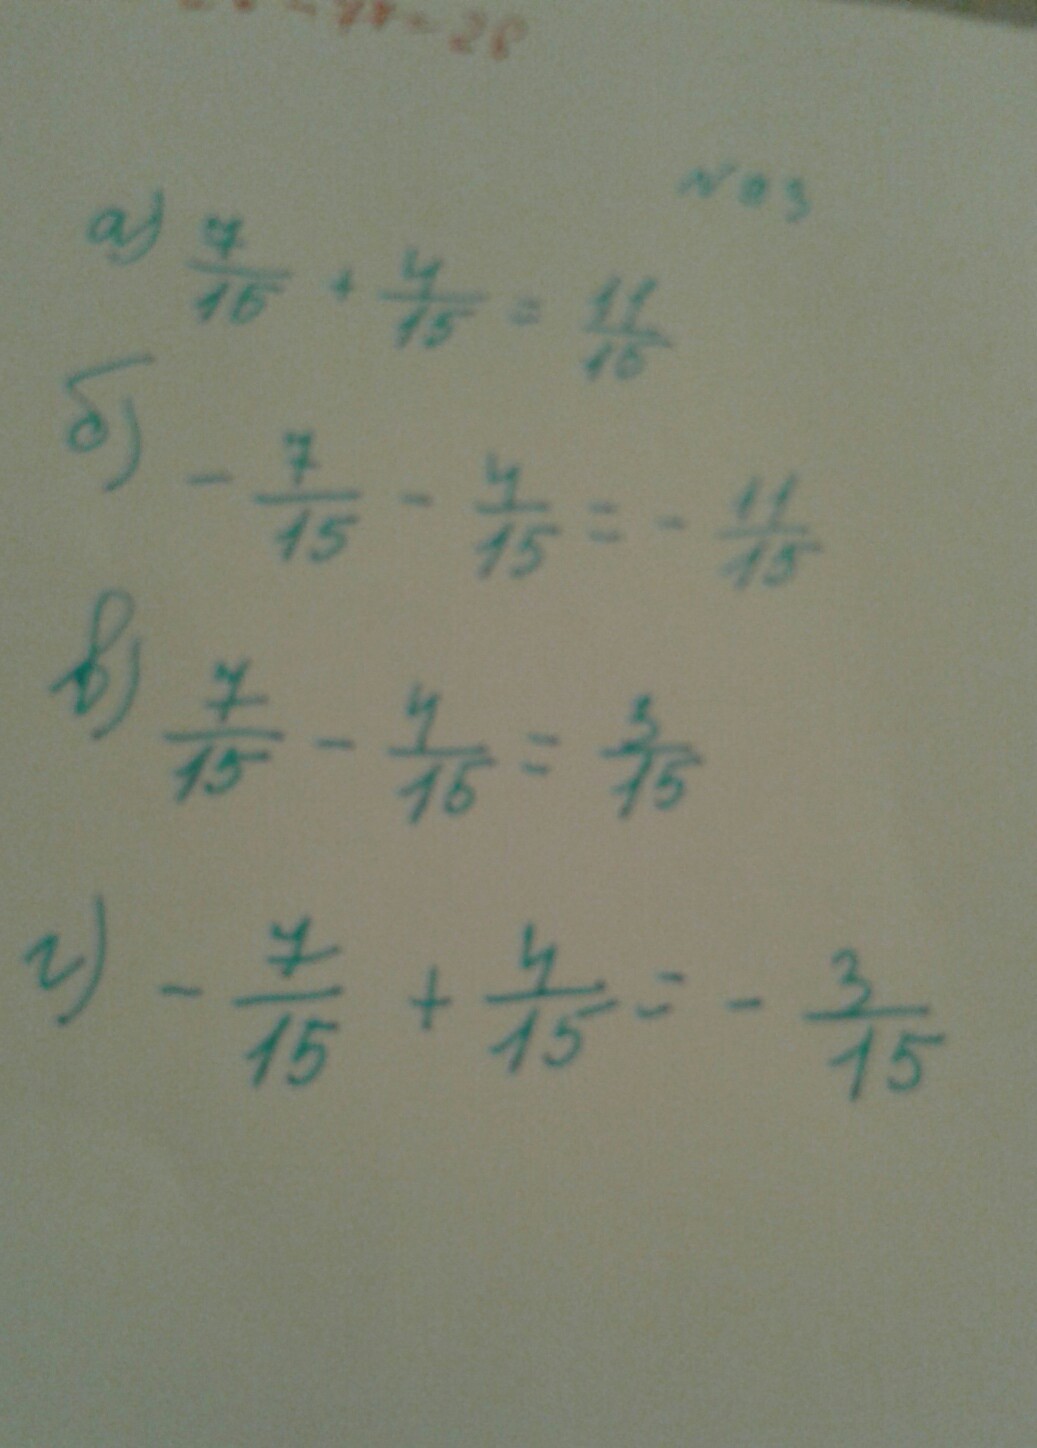 = 28
№ 3
а) 7/15 + 4/15 = 11/15
б) - 7/15 - 4/15 = - 11/15
в) 7/15 - 4/15 = 3/15
г) - 7/15 + 4/15 = - 3/15